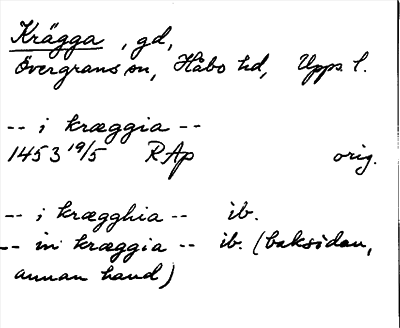 Krägga, gd,
Övergrans sn, Håbo hd, Upps. l.
-- i kræggia --
1453 19/5 RAp orig.
-- i krægghia -- ib.
-- in kræggia -- ib. (baksidan,
annan hand)